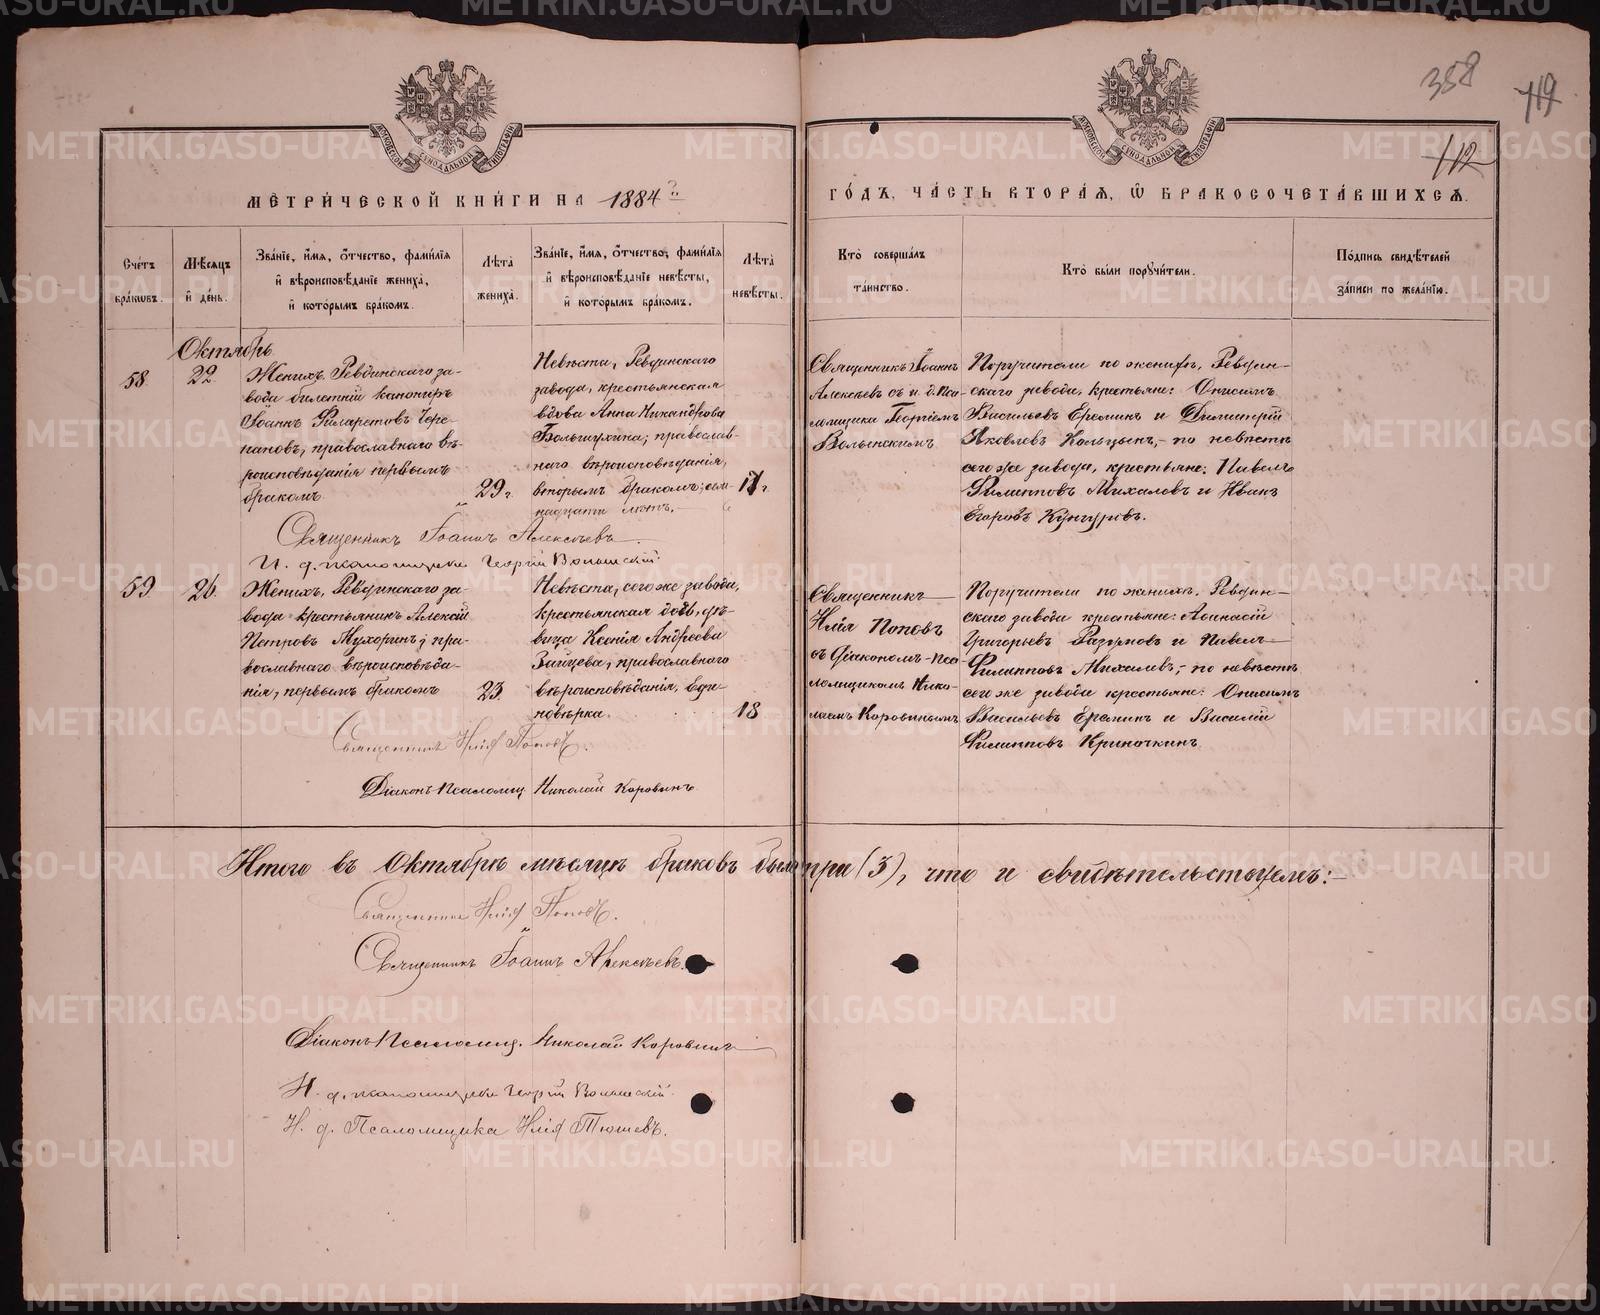 358
719
112
МОСКОВСКОЙ СѴНОДАЛЬНОЙ ТИПОГРАФІИ
МОСКОВСКОЙ СѴНОДАЛЬНОЙ ТИПОГРАФІИ
МЕТРИЧЕСКОЙ КНИГИ НА 1884 ГОДЪ, ЧАСТЬ ВТОРАЯ, Ѡ БРАКОСОЧЕТАВШИХСЯ.
Счетъ браковъ.
Мѣсяцъ и день.
Званіе, имя, отчество, фамилія и вѣроисповѣданіе жениха, и которымъ бракомъ.
Лѣта жениха.
Званіе, имя, отчество, фамилія и вѣроисповѣданіе невѣсты, и которымъ бракомъ.
Лѣта невѣсты.
Кто совершалъ таинство.
Кто были поручители.
Подпись свидѣтелей записи по желанію.
Октябрь
58.
22.
Женихъ, Ревдинскаго за-
вода билетный канониръ
Іоаннъ Филаретовъ Чере-
пановъ, православнаго вѣ-
роисповѣданія первымъ
бракомъ
29 г.
Невѣста, Ревдинскаго
завода, крестьянская
вдова Анна Никандрова
православ-
наго вѣроисповѣданія,
вторымъ бракомъ; сем-
надцати лѣтъ.
17 г.
Священникъ Іоаннъ
Алексѣевъ съ и. д. Пса-
ломщика Георгіемъ
Волынскимъ
Поручители по женихѣ, Ревдин-
скаго завода, крестьяне: Онисимъ
Васильевъ Ереминъ и Димитрій
Яковлевъ Кольцынъ, - по невѣстѣ
сего же завода, крестьяне: Павелъ
Филипповъ Михалевъ и Иванъ
Егоровъ Кунгуровъ.
Священникъ Іоаннъ Алексѣевъ.
И. д. псаломщика Георгій Волынскій
59
26.
Женихъ, Ревдинскаго за-
вода крестьянинъ Алексій
Петровъ Мухоринъ, пра-
вославнаго вѣроисповѣда-
нія, первымъ бракомъ
23.
Невѣста, сего же завода,
крестьянская дочь, дѣ-
вица Ксенія Андреева
Зайцева, православнаго
вѣроисповѣданія, Еди-
новѣрка.
18
Священникъ
Илія Поповъ
съ Діакономъ-Пса-
ломщикомъ Нико-
лаемъ Коровинымъ
Поручители по женихѣ, Ревдин-
скаго завода крестьяне: Афанасій
Григорьевъ Разумовъ и Павелъ
Филипповъ Михалевъ, - по невѣстѣ
сего же завода крестьяне: Онисимъ
Васильевъ Ереминъ и Василій
Филипповъ Криночкинъ
Священникъ Илія Поповъ.
Діаконъ-Псаломщ. Николай Коровинъ
Итого въ Октябрѣ мѣсяцѣ браковъ было три (3), что и свидѣтельствуемъ:-
Священникъ Илія Поповъ.
Священникъ Іоаннъ Алексѣевъ.
Діаконъ-Псаломщ. Николай Коровинъ
И. д. псаломщика Георгій Волынскій.
И. д. Псаломщика Илія Тюшевъ.
METRIKI.GASO-URAL.RU